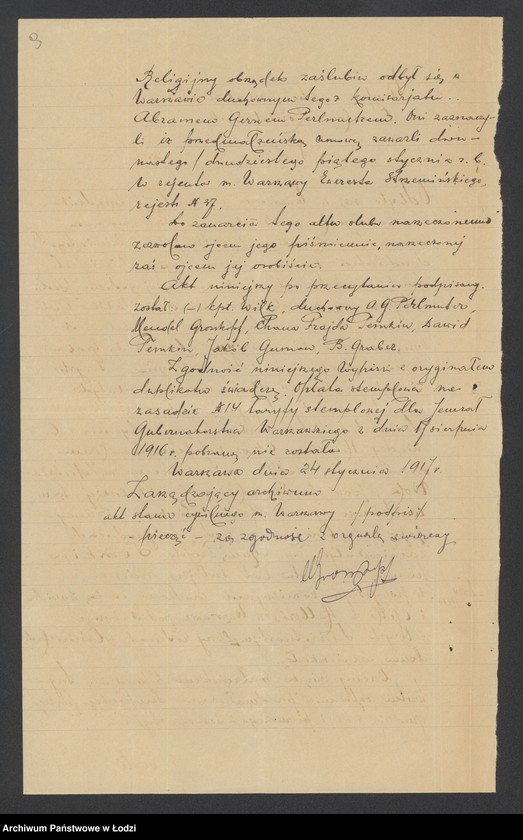 3
Religijny obrządek zaślubin odbył się w
Warszawie duchownym tegoż komisarjatu
Abramem Gerszem Perlmutrem. Oni zaznaczy-
li iż przedmałżeńską umowę zawarli dwu-
nastego / dwudziestego piątego stycznia r. b.
u rejenta m. Warszawy Ezeresta Strzemińskiego,
rejestr № 37.
Do zawarcia tego aktu ślubu narzeczonemu
zezwolono ojcem jego piśmiennie, narzeczonej
zaś - ojcem jej osobiście.
Akt niniejszy po przeczytaniu podpisany
został: (-) kpt. Wilk, duchowny A. G. Perlmuter,
Mendel Gronkopf, Chana Frajda Temkin, Dawid
Temkin, Jakób Guman, B. Grabez.
Zgodność niniejszego Wypisu z oryginałem
dublikatu świadczę, Opłata stemplowa na
zasadzie № 14 taryfy stemplowej dla Jenerał
Gubernatorstwa Warszawskiego z dnia 17 sierpnia
1916 r. pobraną nie została
Warszawa dnia 24 stycznia 1917 r.
Zarządzający archiwum
akt stanu cywilnego m. Warszawy /podpis/.
- pieczęć - za zgodność z oryginałem świadczy
Archiwum Państwowe w Łodzi